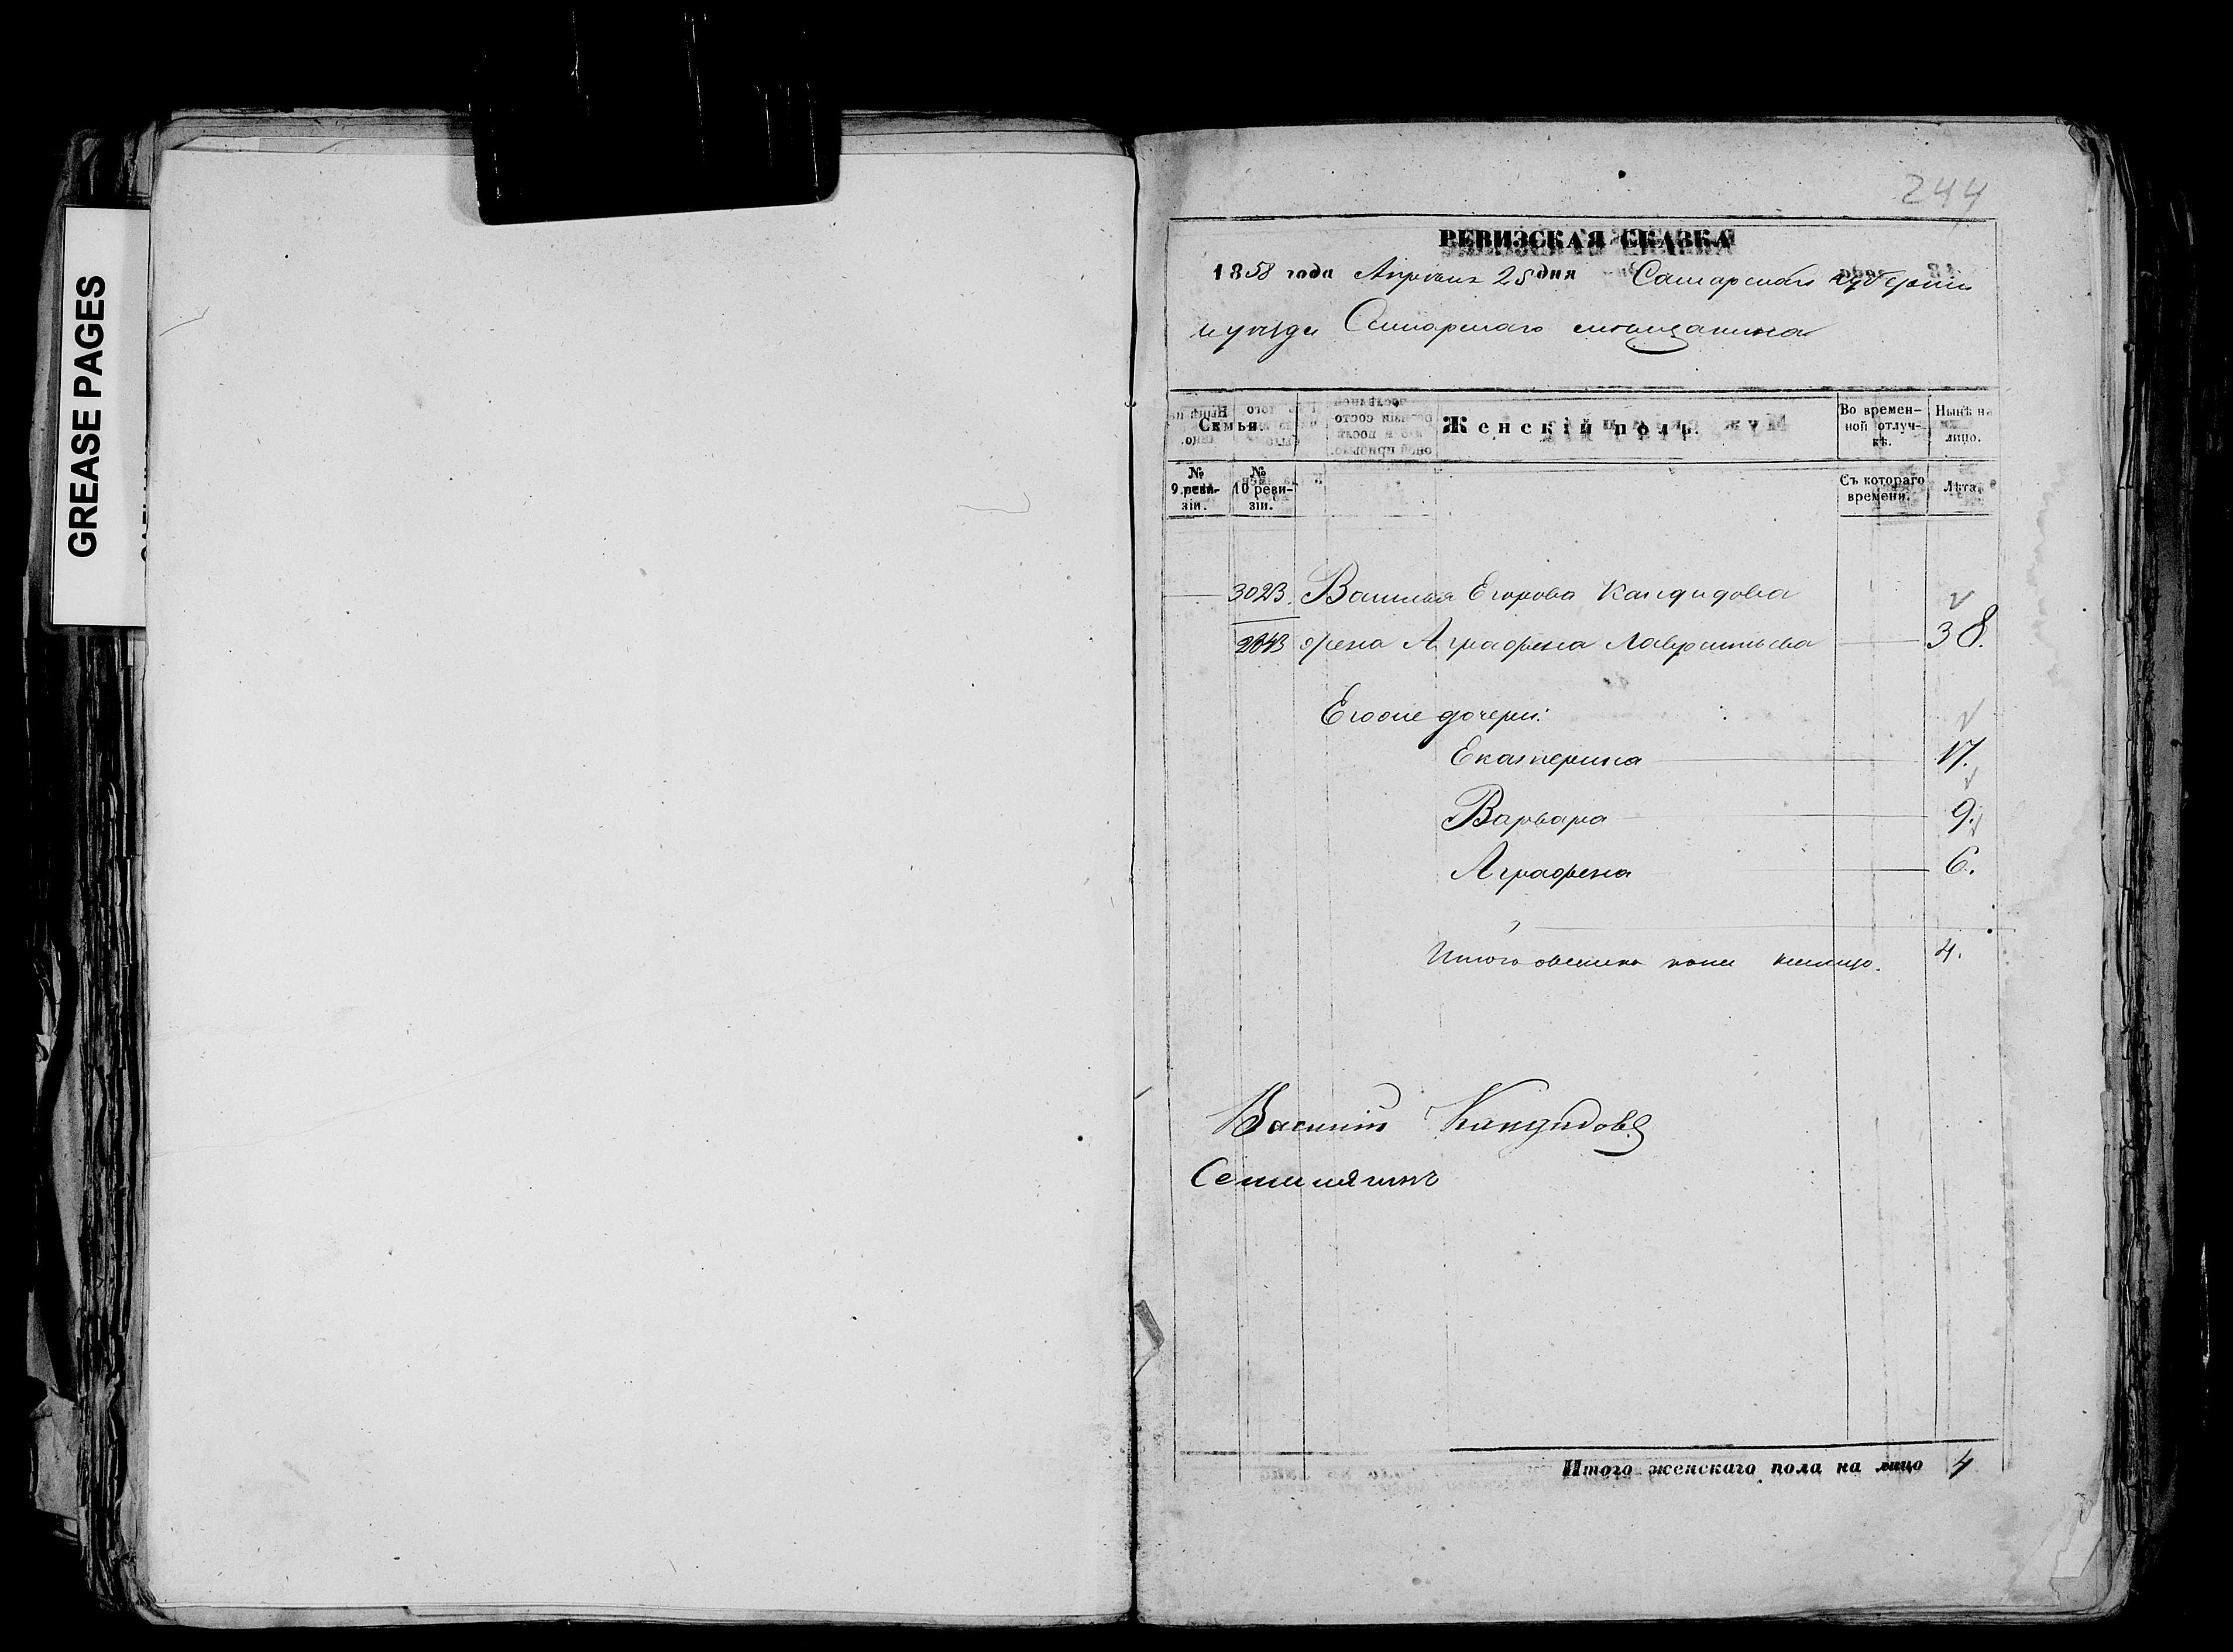 GREASE PAGES
244
РЕВИЗСКАЯ СКАЗКА
1858 года Апрѣля 25 дня Самарской губерніи
и уѣзда Самарскаго мѣщанина
Семьи. Женскій полъ. Во времен-ной отлуч-кѣ. Нынѣ на лицо.
№ 9 реви-зіи. № 10 реви-зіи. Съ котораго времени. Лѣта.
3023. Василья Егорова Кандидова
жена Аграфена Лаврентьева 38.
Егоже дочери:
Екатерина 17.
Варвара 9.
Аграфена 6.
Итого женска пола налицо. 4.
Василій Кандидовъ
Итого женскаго пола на лицо 4